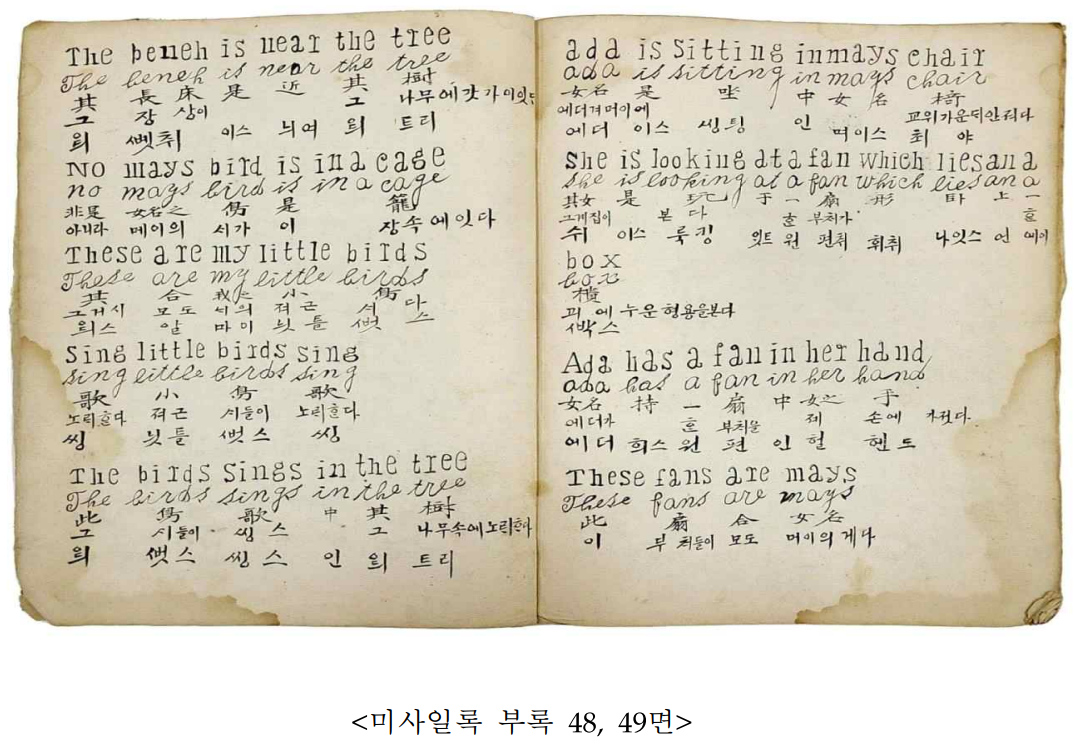 The beneh is near the tree
The beneh is near the tree
其 長 床 是 近 其 樹
그 장 상이 그 나무에 갓가이잇
의 쎗취 이스 늬여 의 트리
No mays bird is in a cage
no mays bird is in a cage
非是 女名之 鳥 是 籠
아니라 메이의 시가 이 장속에잇다
These are my little birds
These are my little birds
其 合 我之 小 鳥
그거시 모도 너의 젹근 시 다
의스 알 마이 릿틀 쎗 스
Sing little birds sing
sing little birds sing
歌 小 鳥 歌
노릭흔다 젹근 시들이 노릭흔다
씽 릿틀 쎗스 씽
The birds sings in the tree
The birds sings in the tree
此 鳥 歌 中 其 樹
그 시들이 씽스 그 나무속에노릭흔다
의 쎗스 씽스 인 의 트리
ada is sitting in mays chair
ada is sitting in mays chair
女名 是 坐 中 女名 椅
에더겨머이에 교위가운딕안져다
에더 이스 씽팅 인 머이스 최 야
she is looking at a fan which lies an a
she is looking at a fan which lies an a
其女 是 玩 于 一 扇 形 臥 上 一
그게집이 본다 흔 부처가 흔
쉬 이스 룩깅 잇트 원 편취 휘취 나잇스 언 에이
box
box
樻
괴에누운형용을본다
쎅스
Ada has a fan in her hand
ada has a fan in her hand
女名 持 一 扇 中 女之 手
에더가 흔 부처을 제 손에 가젓다
에더 희스 원 편 인 헐 핸드
These fans are mays
These fans are mays
此 扇 合 女名
이 부처들이 모도 머이의게다
<미사일록 부록 48, 49면>